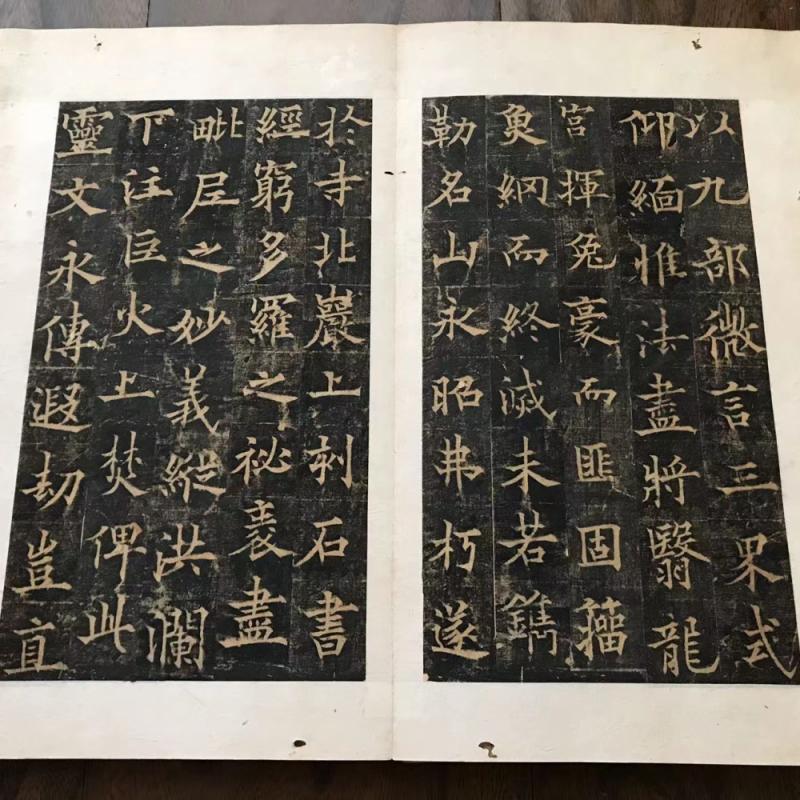 以九部微言三果式
仰緬惟法盡將翳龍
宮揮兔豪而匪固籀
魚網而終滅未若鐫
勒名山永昭弗朽遂
於寺北巖上石書
經窮多羅之祕袠盡
毗尼之妙義縱洪瀾
下注巨火上焚俾此
靈文永傳遐劫豈直